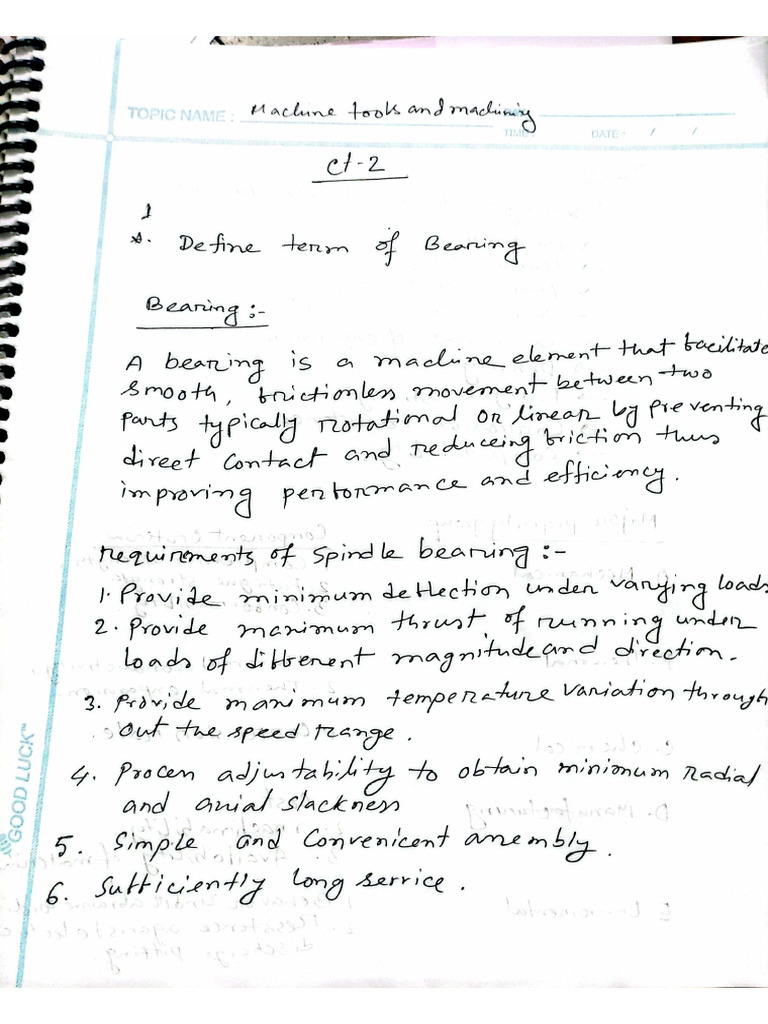 TOPIC NAME: Machine tools and machining
TIME
DATE: / /
ct-2
1
Define term of Bearing
Bearing :-
A bearing is a machine element that facilitate
smooth, frictionless movement between two
parts typically rotational or linear by preventing
direct contact and reduceing friction thus
improving performance and efficiency.
requirements of spindle bearing :-
1. Provide minimum deflection under varying loads
2. Provide maximum thrust of running under
loads of different magnitude and direction.
3. Provide maximum temperature variation through
out the speed range.
4. Process adjustability to obtain minimum radial
and axial slackness
5. Simple and convenicent assembly.
6. Sufficiently long service.
GOOD LUCK